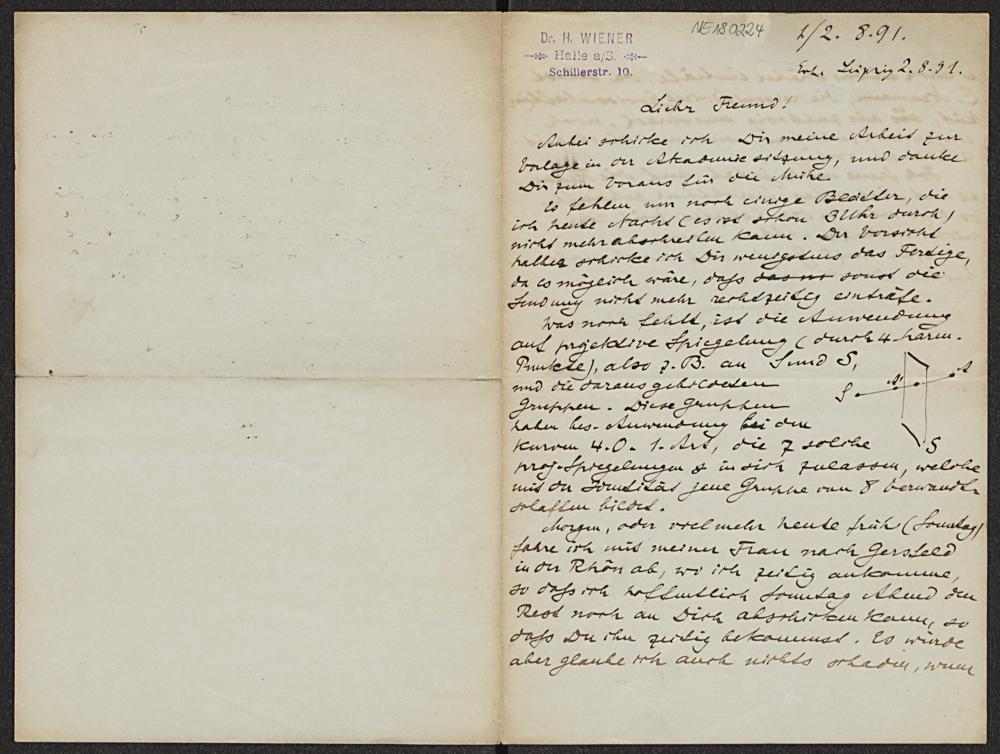 NE180224
Dr. H. WIENER
Halle a/S.
Schillerstr. 10.
1/2. 8. 91.
Erh. Leipzig 2. 8. 91.
Lieber Freund!
Anbei schicke ich Dir meine Arbeit zur
Vorlage in der Akademiesitzung, und danke
Dir zum Voraus für die Mühe.
Es fehlen nur noch einige Blätter, die
ich heute Nacht (es ist schon 3 Uhr durch)
nicht mehr abschreiben kann. Der Vorsicht
halber schicke ich Dir wenigstens das Fertige,
da es möglich wäre, dass sonst die
Sendung nicht mehr rechtzeitig einträfe.
Was noch fehlt, ist die Anwendung
auf projektive Spiegelung (durch 4 harm.
Punkte), also z. B. an S und S,
und die daraus gebildeten
Gruppen. Diese Gruppen
haben bes. Anwendung bei den
Kurven 4. O. 1. Art, die 7 solche
proj. Spiegelungen in sich zulassen, welche
mit der Identität jene Gruppe von 8 Verwandt-
schaften bildet.
Morgen, oder vielmehr heute früh (Sonntag)
fahre ich mit meiner Frau nach Gersfeld
in der Rhön ab, wo ich zeitig ankomme,
so dass ich hoffentlich Sonntag Abend den
Rest noch an Dich abschicken kann, so
dass Du ihn zeitig bekommst. Es würde
aber glaube ich auch nichts schaden, wenn
S A' A
S